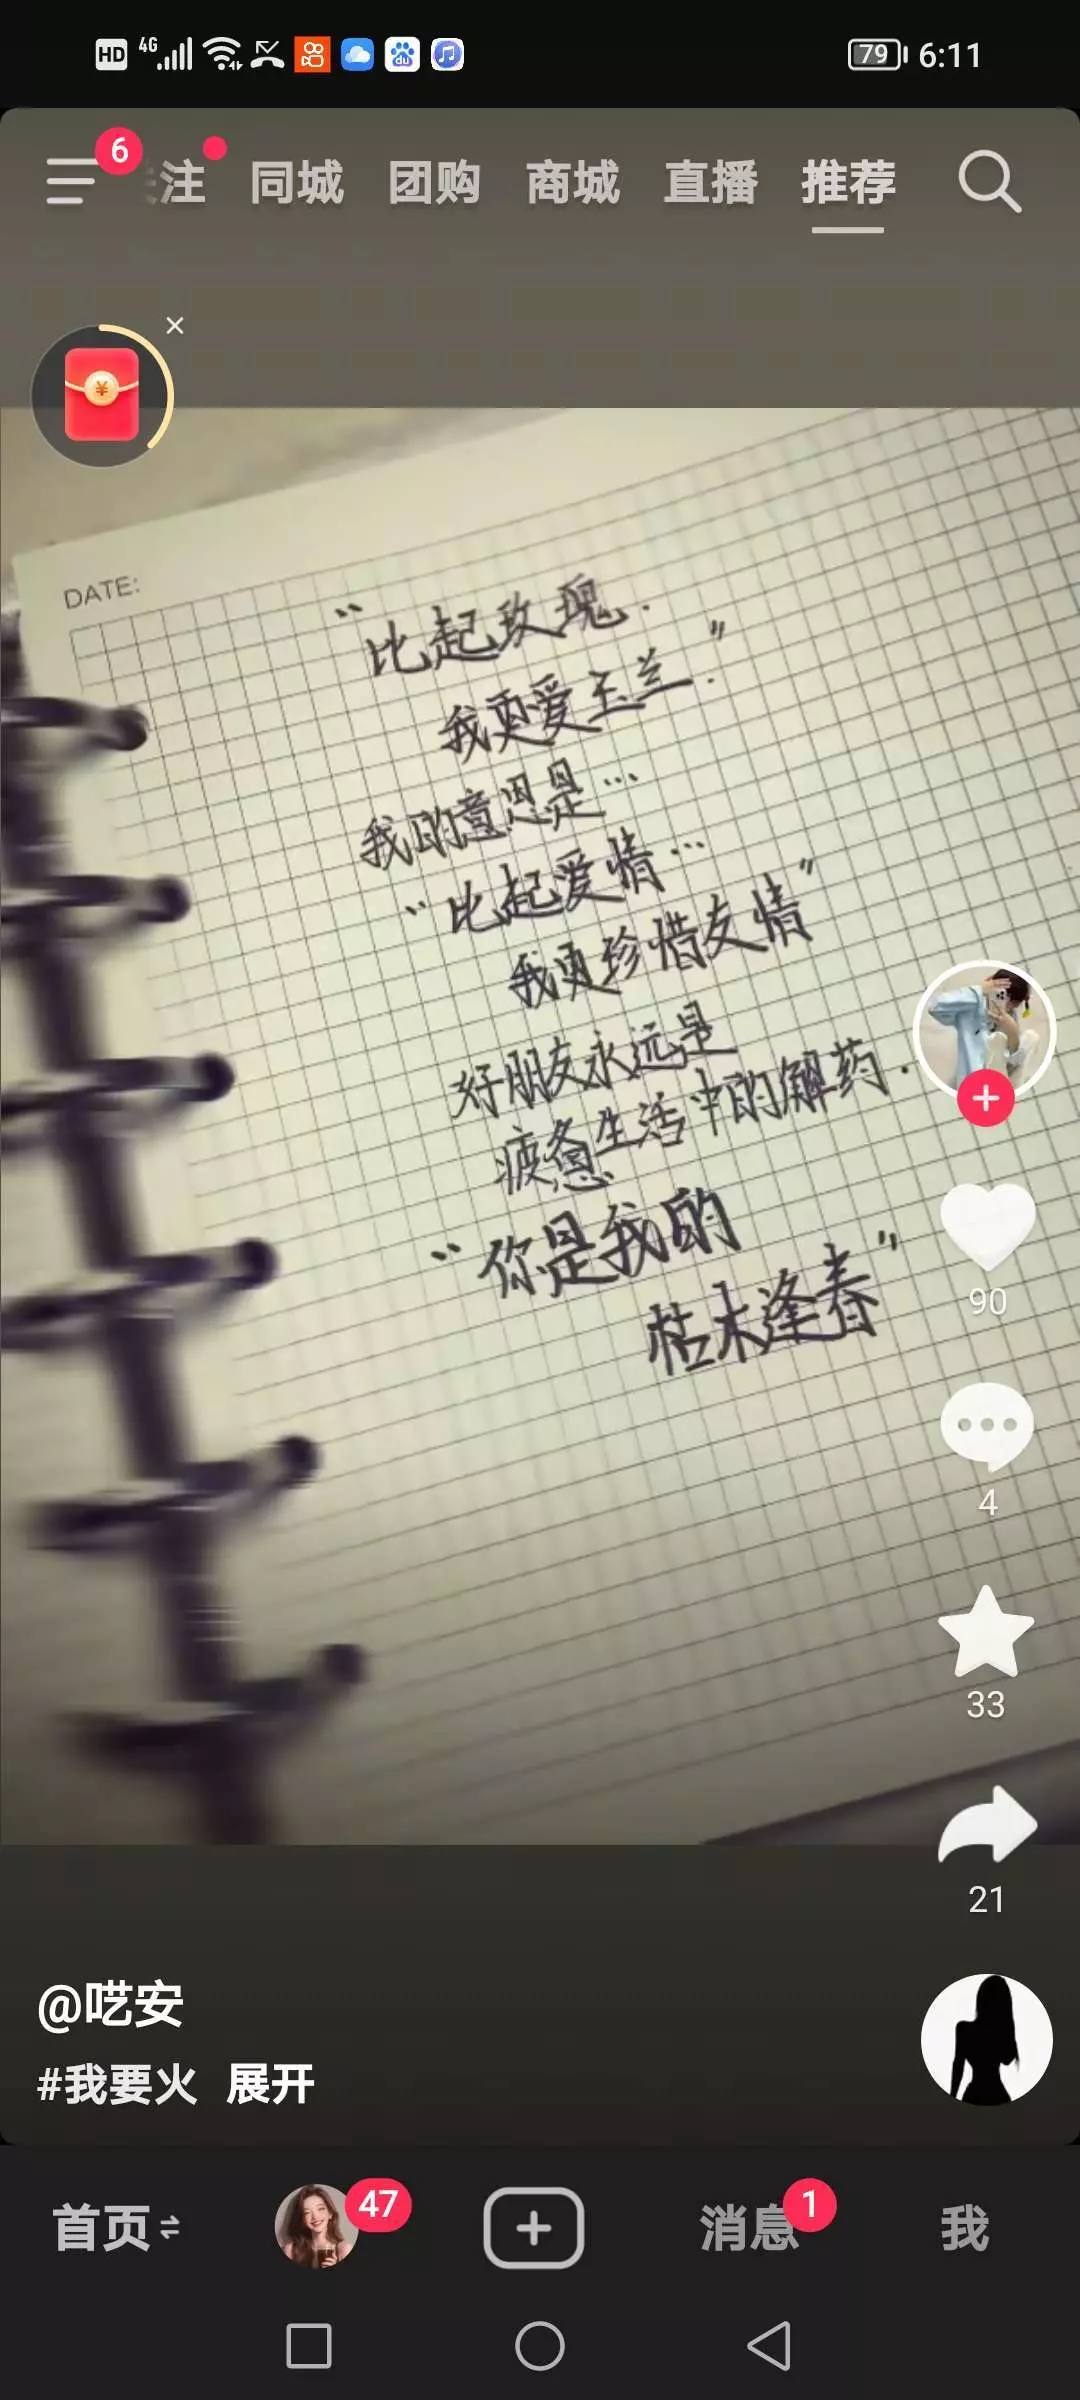 HD 4G 79 6:11
6
注 同城 团购 商城 直播 推荐
¥
DATE:
“比起玫瑰.
我更爱玉兰.”
我的意思是…
“比起爱情…
我更珍惜友情”
好朋友永远是
疲惫生活中的解药.
“你是我的
枯木逢春”
90
4
33
21
@呓安
#我要火 展开
首页 47 消息 1 我